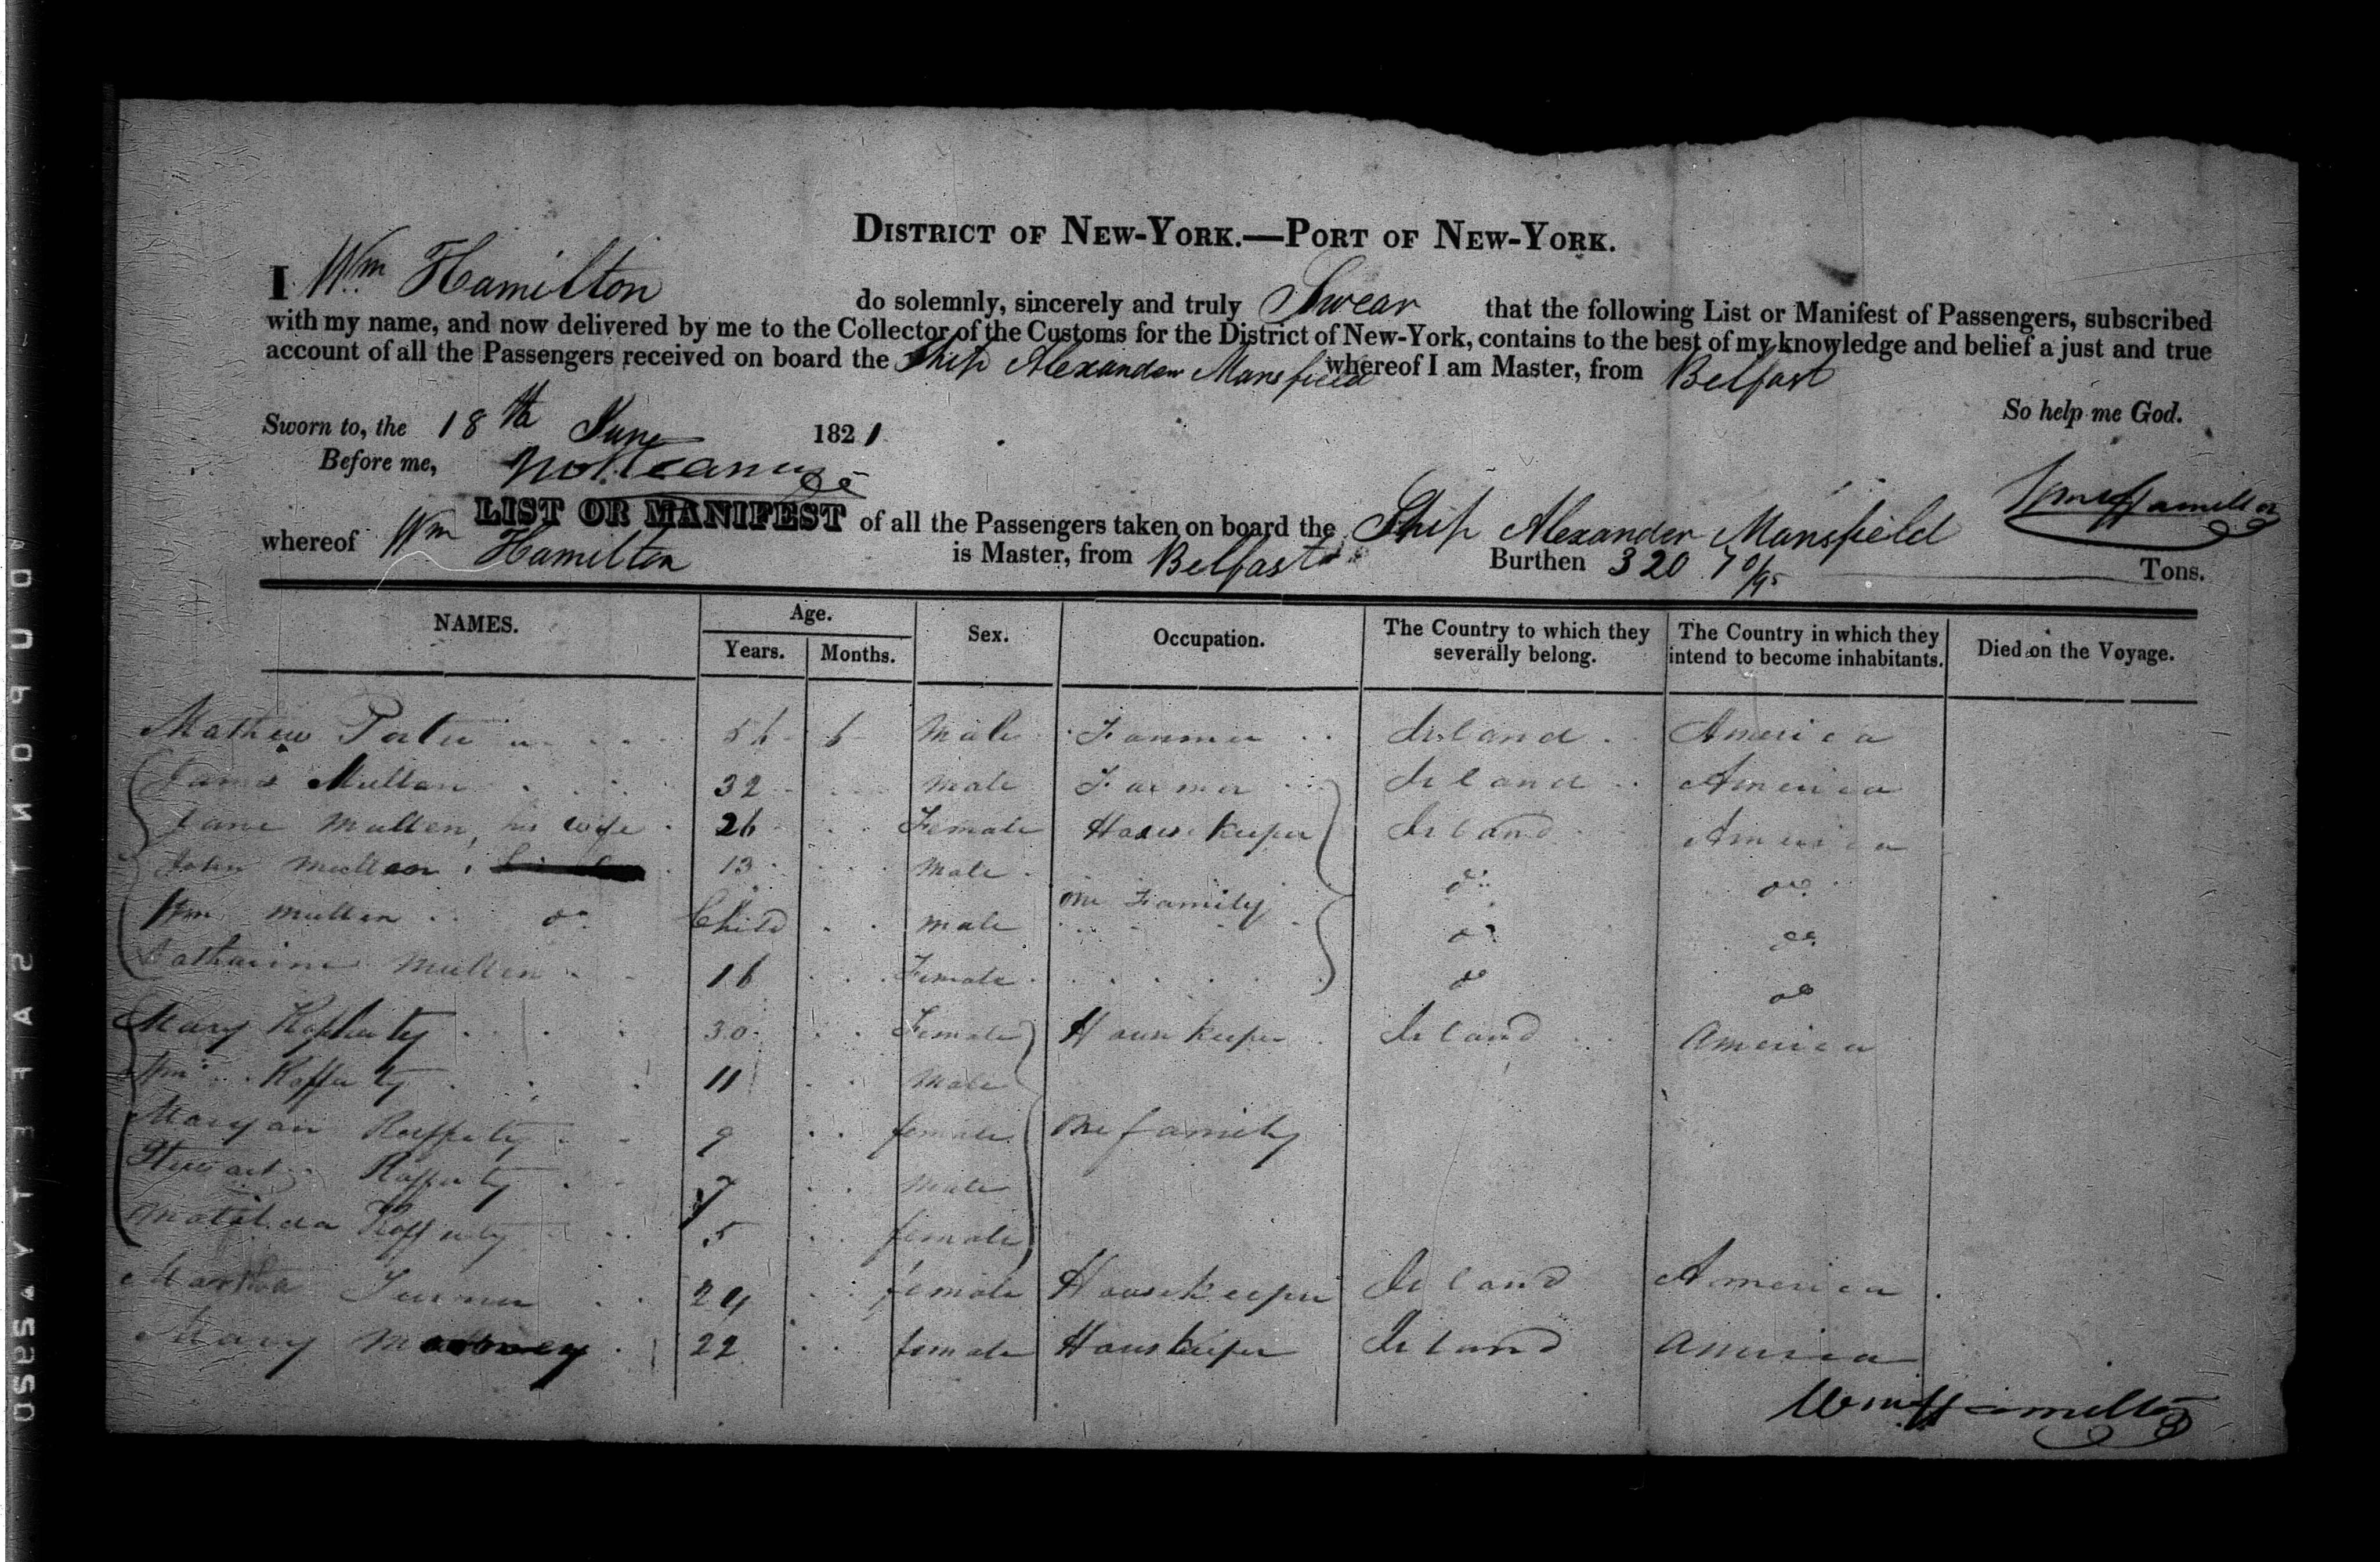 DISTRICT OF NEW-YORK.—PORT OF NEW-YORK.
I Wm Hamilton do solemnly, sincerely and truly Swear that the following List or Manifest of Passengers, subscribed
with my name, and now delivered by me to the Collector of the Customs for the District of New-York, contains to the best of my knowledge and belief a just and true
account of all the Passengers received on board the Ship Alexander Mansfield whereof I am Master, from Belfast
So help me God.
Sworn to, the 18th June 1821
Before me,
Wm Hamilton
LIST OR MANIFEST of all the Passengers taken on board the Ship Alexander Mansfield
whereof Wm Hamilton is Master, from Belfast Burthen 320 70/95 Tons.
NAMES. Age. Sex. Occupation. The Country to which they severally belong. The Country in which they intend to become inhabitants. Died on the Voyage.
Years. Months.
Mathew Porter 56 6 Male Farmer Ireland America
James Mullan 32 male Farmer Ireland America
Jane Mullen, his wife 26 Female House Keeper Ireland America
John Mullen 13 Male do do
one Family
Wm Mullen do Child male do do
Catharine Mullen 16 Female do do
Mary Rafferty 30 Female House keeper Ireland America
Wm Rafferty 11 Male
Maryan Rafferty 9 female One family
Stewart Rafferty 7 Male
Matilda Rafferty 5 female
Martha Turner 24 female Housekeeper Ireland America
Mary 22 female Houskeeper Ireland America
Wm Hamilton